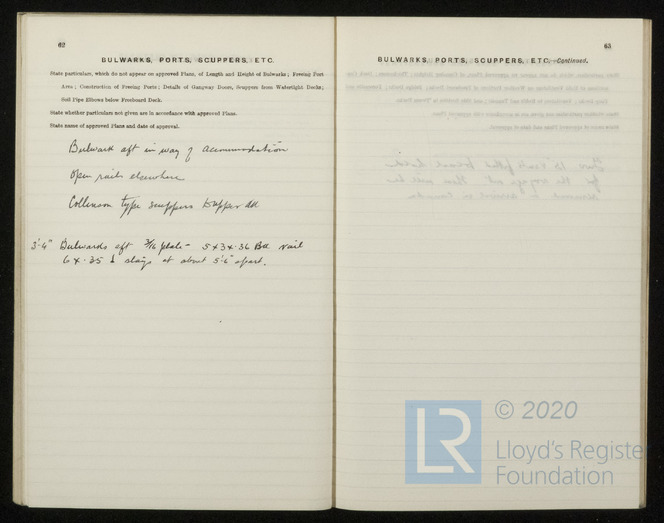 62
BULWARKS, PORTS, SCUPPERS, ETC.
State particulars, which do not appear on approved Plans, of Length and Height of Bulwarks; Freeing Port
Area; Construction of Freeing Ports; Details of Gangway Doors, Scuppers from Watertight Decks;
Soil Pipe Elbows below Freeboard Deck.
State whether particulars not given are in accordance with approved Plans.
State name of approved Plans and date of approval.
Bulwark aft in way of accommodation
open rails elsewhere
Collinson type scuppers upper dk
3'-6" Bulwarks aft 3/16 plate - 5 x 3 x .36 BA rail
6 x .35 stays at about 5'-6" apart.
63
BULWARKS, PORTS, SCUPPERS, ETC.—Continued.
LR
© 2020
Lloyd's Register
Foundation